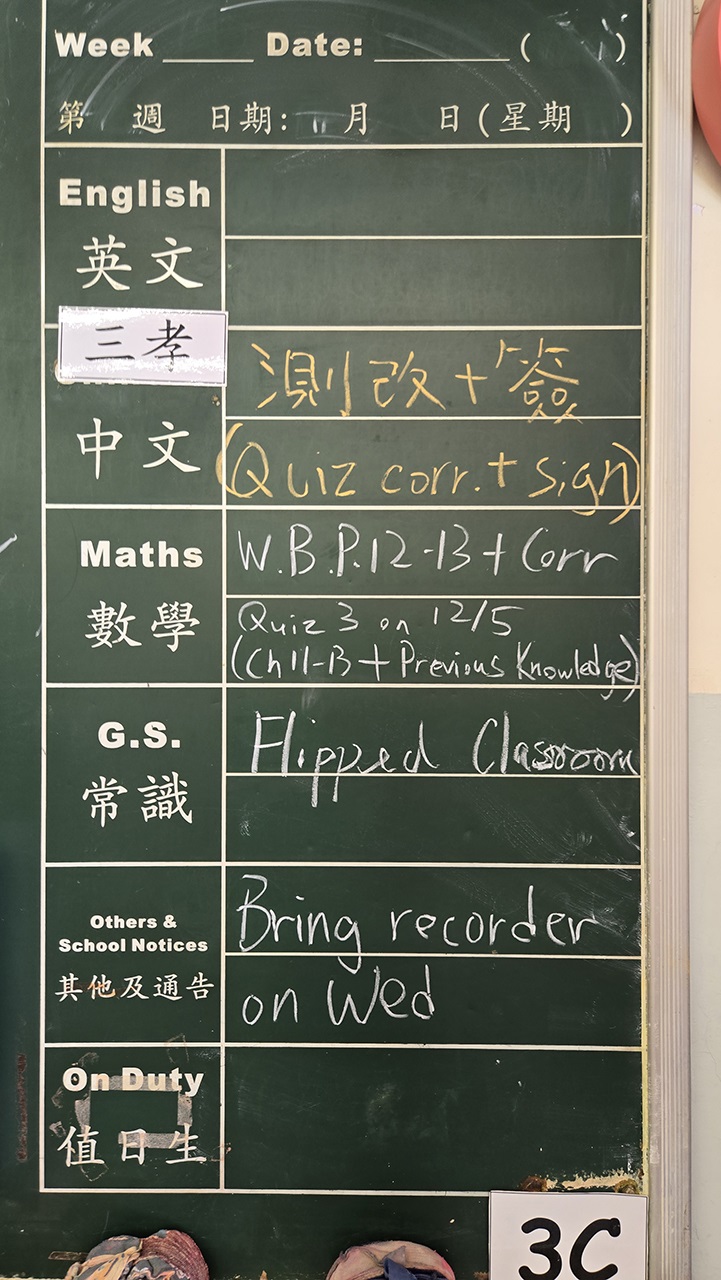 Week ____ Date: ______ ( )
第 週 日期: 月 日(星期 )
English
英文
三孝
測改+簽
中文
(Quiz corr.+ sign)
Maths
W.B.P.12-13 + Corr
數學
Quiz 3 on 12/5
(Ch 11-13 + Previous Knowledge)
G.S.
Flipped Classroom
常識
Others &
School Notices
其他及通告
Bring recorder
on Wed
On Duty
值日生
3C